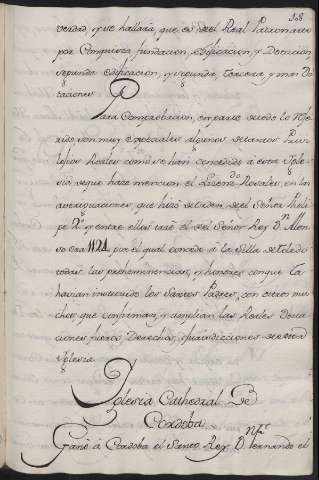 108
verdad, y que hallará, que es del Real Patronato
por Conquista, fundacion, edificacion, y Dotacion
segunda edificacion, y segunda, tercera, y mas Do
taciones.
Para Comprobacion, en parte de todo lo refe
rido, son muy expeciales algunos de tantos Privi
lexios Reales como se han concedido á esta Igle
sia de que haze mencion el Lizenz.do Rosales, en las
averiguaciones, que hizo de orden del Señor Pheli
pe 2.º y entre ellas trae el del Señor Rey D.n Alon
so era 1124, por el qual concede à la Silla de Toledo
todas las prehemminencias, y honores con que la
havian instituido los Santos Padres, con otros mu
chos, que confirman, y amplian las Reales Dota
ciones, fueros, Derechos, jurisdicciones de esta
Yglesia
Yglesia Cathedral De
Cordoba
Ganó á Cordoba el Santo Rey D.n Fernando el